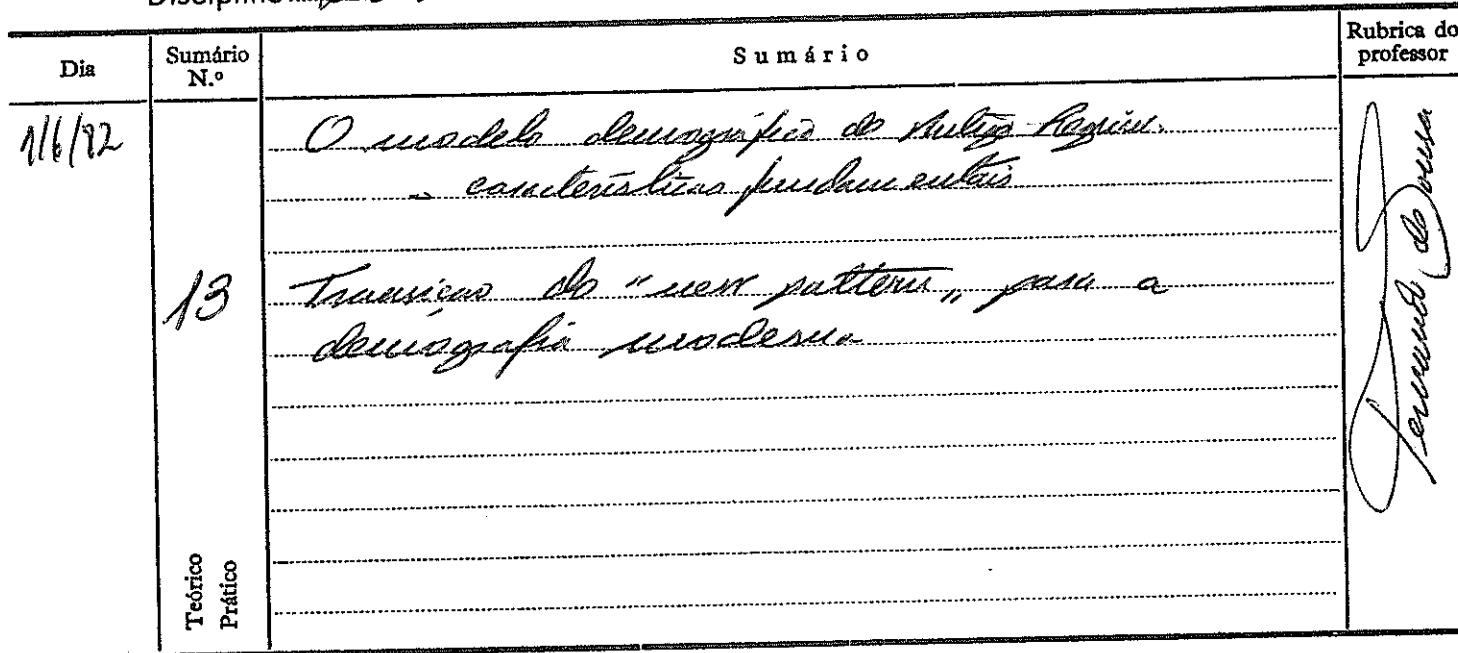 Dia
Sumário N.º
Sumário
Rubrica do professor
1/6/82
O modelo demográfico do Antigo Regime.
- características fundamentais
13
Transição do "new pattern" para a
demografia moderna
Teórico
Prático
Fernando de Sousa